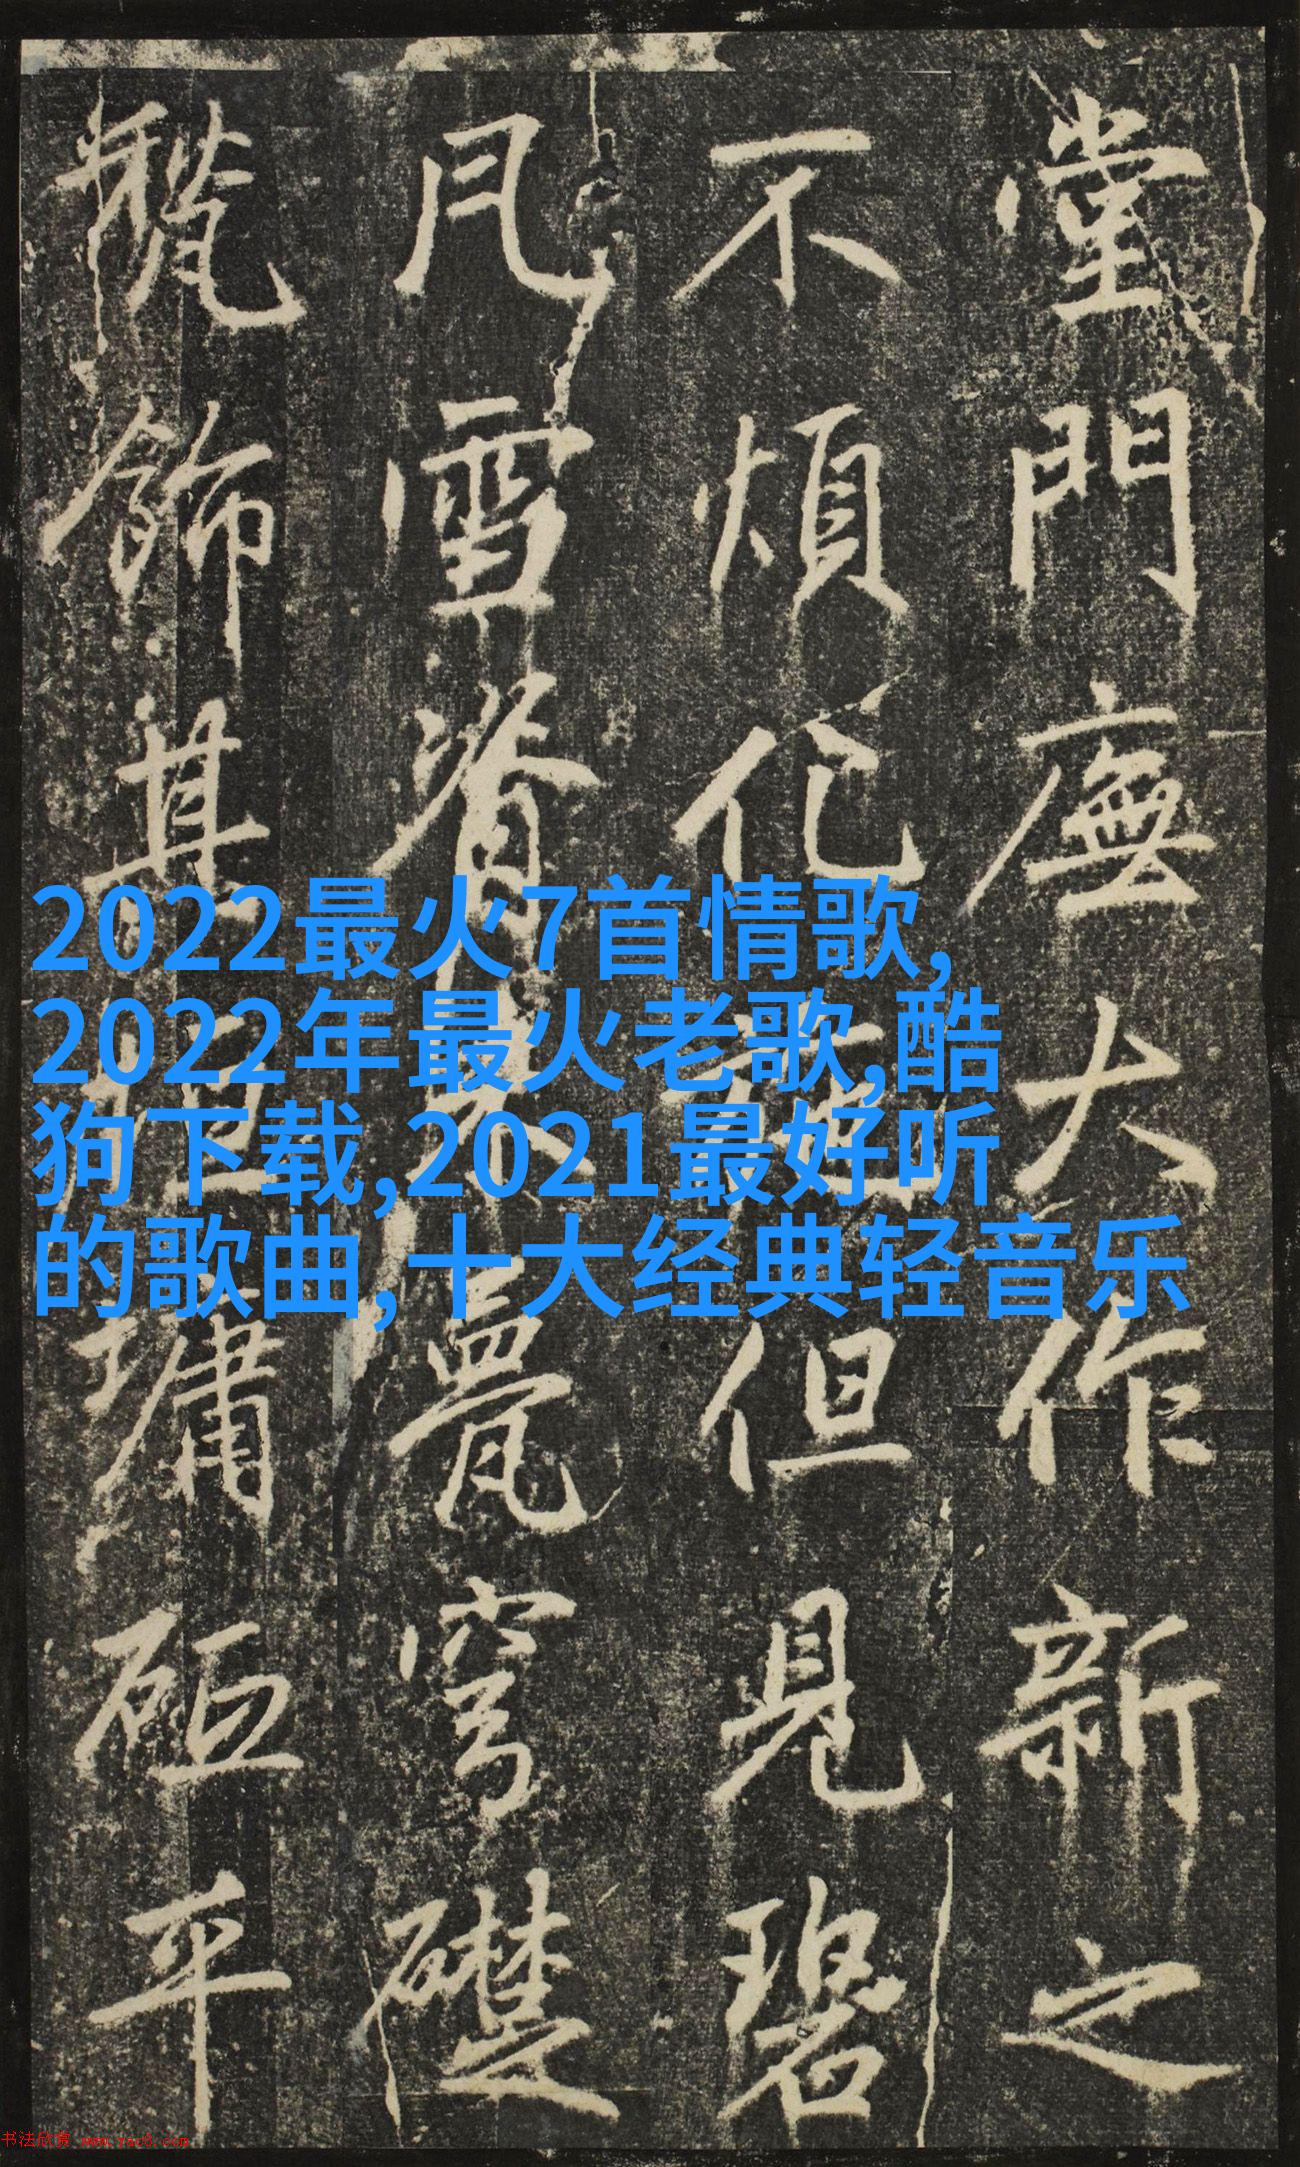 堂門廡大作新之
不煩化但見碧
雪脊甍穹礎
飾其墉平
2022最火7首情歌,
2022年最火老歌,酷
狗下载,2021最好听
的歌曲,十大经典轻音乐
书法欣赏 www.yac8.com